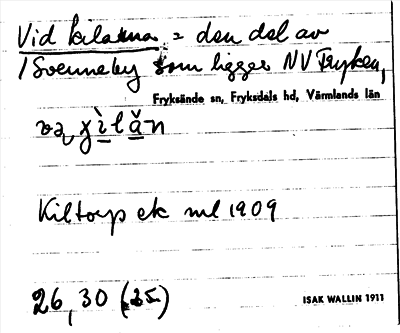 Vid kilarna = den del av
/Svenneby som ligger NV Fryken,
Fryksände sn, Fryksdals hd, Värmlands län
Kiltorp ek ml 1909
26,30 (25)
ISAK WALLIN 1911